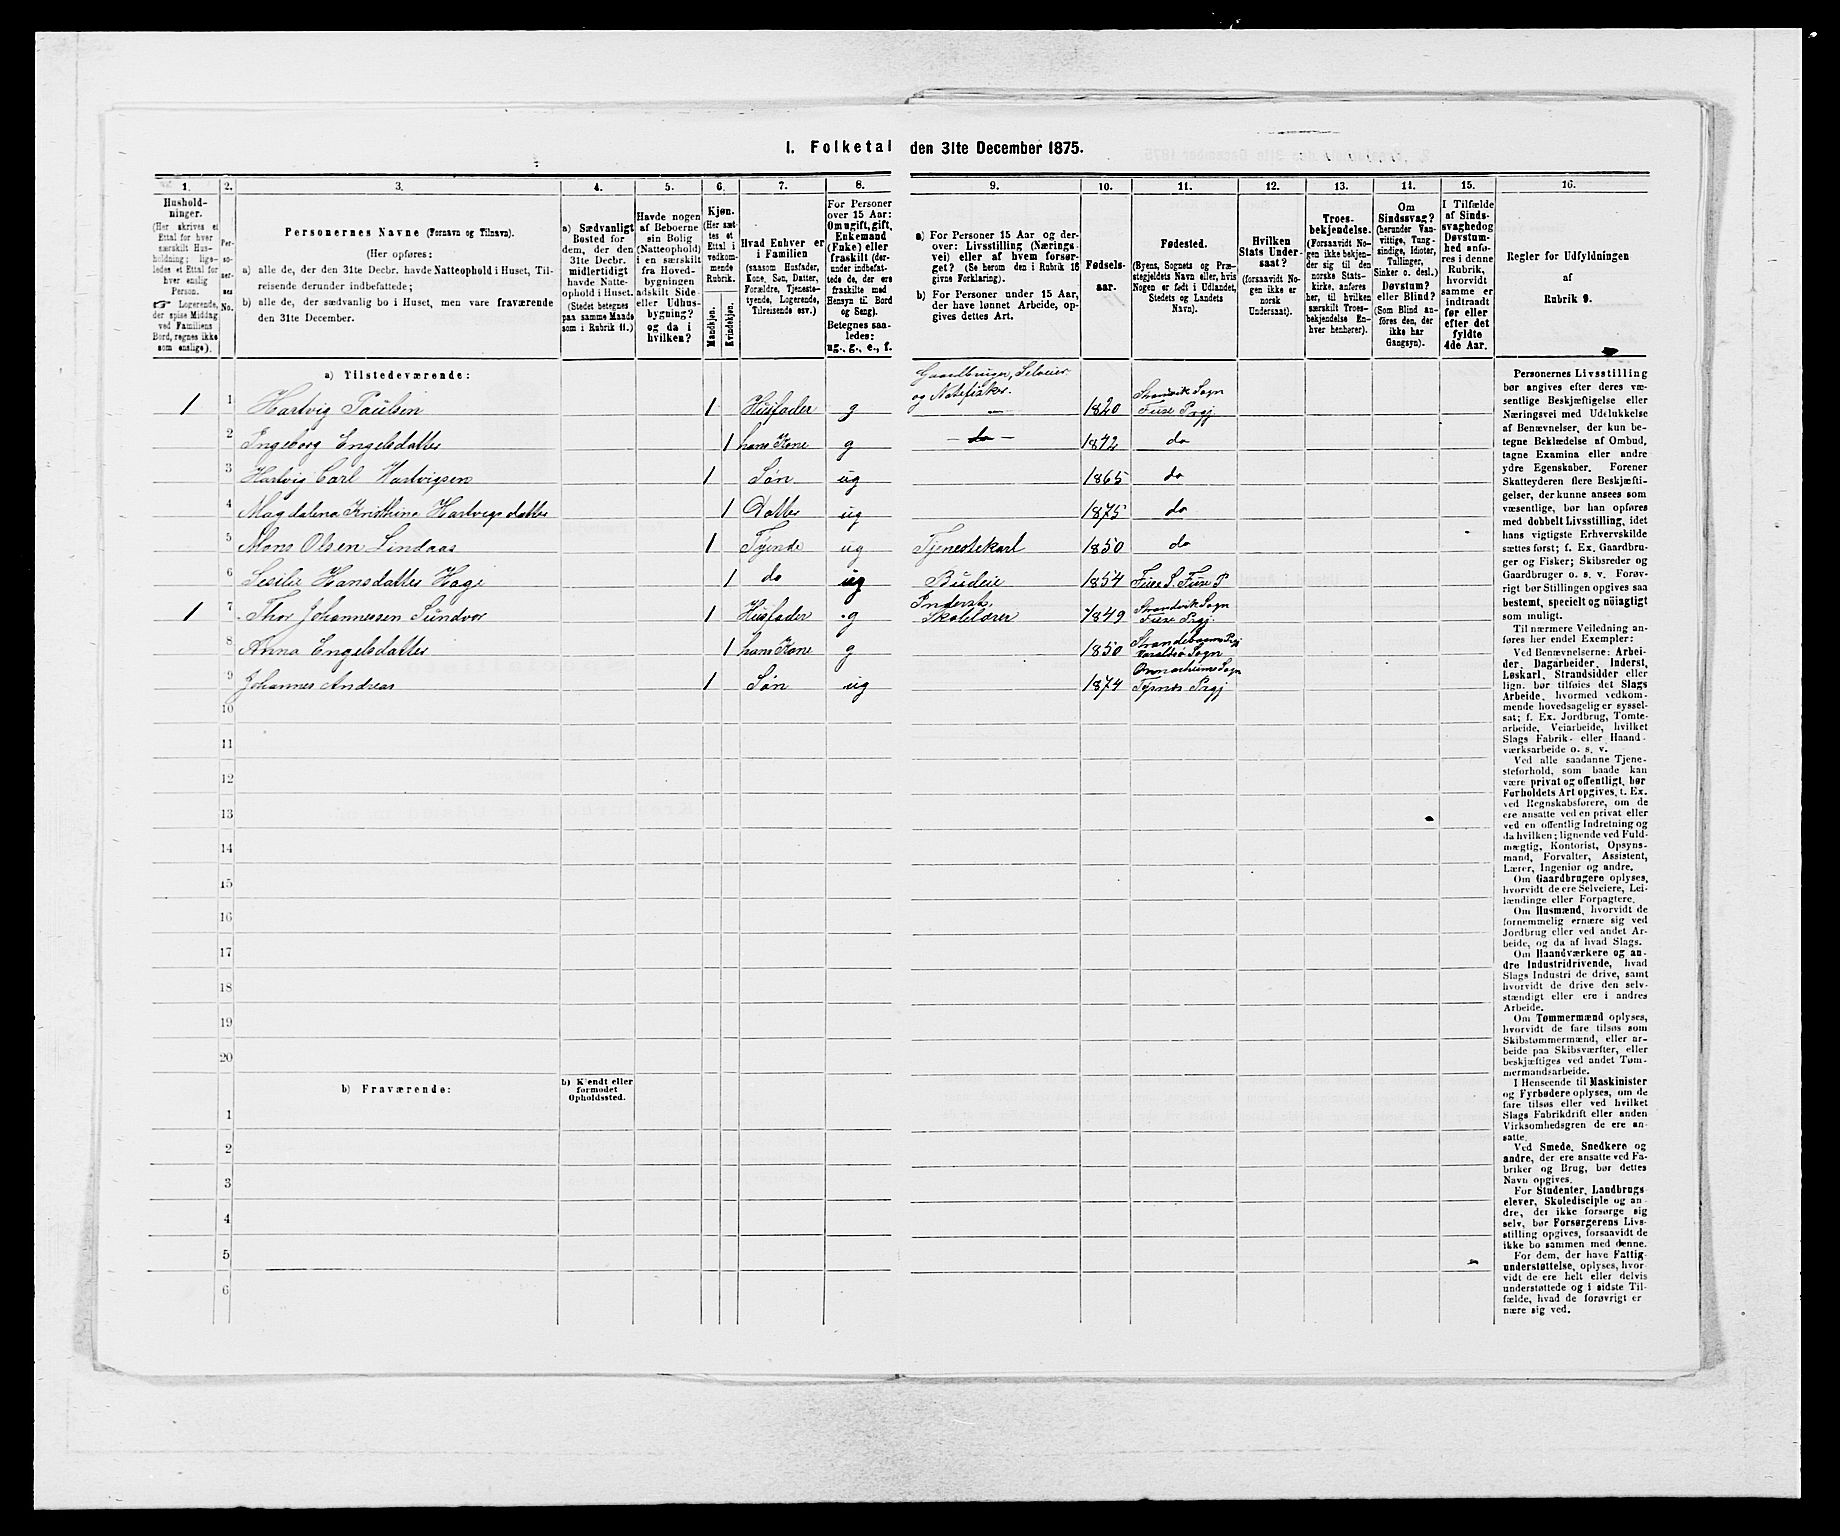 I. Folketal den 31te December 1875.
1. 2. 3. 4. 5. 6. 7. 8. 9. 10. 11. 12. 13. 14. 15. 16.
Hushold-
ninger.
(Her skrives et
Ettal for hver
særskilt Hus-
holdning; lige-
ledes et Ettal for
hver enslig
Person.
☞ Logerende,
der spise Middag
ved Familiens
Bord, regnes ikke
som enslige).
Per-
so-
ner-
nes
No.
Personernes Navne (Fornavn og Tilnavn).
(Her opføres:
a) alle de, der den 31te Decbr. havde Natteophold i Huset, Til-
reisende derunder indbefattede;
b) alle de, der sædvanlig bo i Huset, men vare fraværende
den 31te December.
a) Sædvanligt
Bosted for
dem, der den
31te Decbr.
midlertidigt
havde Natte-
ophold i Huset.
(Stedet betegnes
paa samme Maade
som i Rubrik 11.)
Havde nogen
af Beboerne
sin Bolig
(Natteophold)
i en særskilt
fra Hoved-
bygningen
adskilt Side-
eller Udhus-
bygning?
og da i
hvilken?
Kjøn.
(Her sæt-
tes et
Ettal i
vedkom-
mende
Rubrik.
Mandkjøn.
Kvindekjøn.
Hvad Enhver er
i Familien
(saasom Husfader,
Kone, Søn, Datter,
Forældre, Tjeneste-
tyende, Logerende,
Tilreisende osv.)
For Personer
over 15 Aar:
Om ugift, gift,
Enkemand
(Enke) eller
fraskilt (der-
under indbefat-
tede de, der ere
fraskilte med
Hensyn til Bord
og Seng).
Betegnes saa-
ledes:
ug., g., e., f.
a) For Personer 15 Aar og der-
over: Livsstilling (Nærings-
vei) eller af hvem forsør-
get? (Se herom den i Rubrik 16
givne Forklaring).
b) For Personer under 15 Aar,
der have lønnet Arbeide, op-
gives dettes Art.
Fødsels-
aar.
Fødested.
(Byens, Sognets og Præ-
stegjeldets Navn eller, hvis
Nogen er født i Udlandet,
Stedets og Landets
Navn).
Hvilken
Stats Under-
saat?
(forsaavidt No-
gen ikke er
norsk
Undersaat).
Troes-
bekjendelse.
(Forsaavidt No-
gen ikke bekjen-
der sig til den
norske Stats-
kirke, anføres
her, til hvilken
særskilt Troes-
bekjendelse En-
hver henhører).
Om
Sindssvag?
(herunder Van-
vittige, Tung-
sindige, Idioter,
Tullinger,
Sinker o. desl.)
Døvstum?
eller Blind?
(Som Blind an-
føres den, der
ikke har
Gangsyn).
I Tilfælde
af Sinds-
svaghed og
Døvstum-
hed anfø-
res i denne
Rubrik,
hvorvidt
samme er
indtraadt
før eller
efter det
fyldte
4de Aar.
Regler for Udfyldningen
af
Rubrik 9.
a) Tilstedeværende:
Gaardbruger, Selveier
og Notefisker.
1 1 Hartvig Paulsen 1 Husfader g — 1820 Strandvik Sogn Fuse Prgj.
2 Ingeborg Engelsdatter 1 hans Kone g — do — 1842 do
3 Hartvig Carl Hartvigsen 1 Søn ug 1865 do
4 Magdalena Kristhine Hartvigsdatter 1 Datter ug 1875 do
5 Mons Olsen Lindaas 1 Tyende ug Tjenestekarl 1850 do
6 Sesilie Hansdatter Hage 1 do ug Budeie 1854 Fuse S. Fuse P
1 7 Thor Johannessen Sundvor 1 Husfader g Inderst, Skolelærer 1849 Strandvik Sogn Fuse Prgj.
8 Anna Engelsdatter 1 hans Kone g 1850 Strandebarms Prgj
9 Johannes Andreas 1 Søn ug 1874 Tysnes Prgj
10
11
12
13
14
15
16
17
18
19
20
b) Fraværende:
b) Kjendt eller
formodet
Opholdssted.
1
2
3
4
5
6
Personernes Livsstilling
bør angives efter deres væ-
sentlige Beskjæftigelse eller
Næringsvei med Udelukkelse
af Benævnelser, der kun be-
tegne Beklædelse af Ombud,
tagne Examina eller andre
ydre Egenskaber. Forener
Skatteyderen flere Beskjæfti-
gelser, der kunne ansees som
væsentlige, bør han opføres
med dobbelt Livsstilling, idet
hans vigtigste Erhvervskilde
sættes først; f. Ex. Gaardbru-
ger og Fisker; Skibsreder og
Gaardbruger o. s. v. Forøv-
rigt bør Stillingen opgives saa
bestemt, specielt og nöiagtigt
som muligt.
Til nærmere Veiledning an-
føres her endel Exempler:
Ved Benævnelserne: Arbei-
der, Dagarbeider, Inderst,
Løskarl, Strandsidder eller
lign. bør tilføies det Slags
Arbeide, hvormed vedkom-
mende hovedsagelig er syssel-
sat; f. Ex. Jordbrug, Tomte-
arbeide, Veiarbeide, hvilket
Slags Fabrik- eller Haand-
værksarbeide o. s. v.
Ved alle saadanne Tjene-
steforhold, som baade kan
være privat og offentligt, bør
Forholdets Art opgives, t. Ex.
ved Regnskabsførere, om de
ere ansatte ved en privat eller
ved en offentlig Indretning og
da hvilken; lignende ved Fuld-
mægtig, Kontorist, Opsyns-
mand, Forvalter, Assistent,
Lærer, Ingeniør og andre.
Om Gaardbrugere oplyses,
hvorvidt de ere Selveiere, Lei-
lændinge eller Forpagtere.
Om Husmænd, hvorvidt de
fornemmelig ernære sig ved
Jordbrug eller ved andet Ar-
beide, og da af hvad Slags.
Om Haandværkere og an-
dre Industridrivende, hvad
Slags Industri de drive, samt
hvorvidt de drive den selv-
stændigt eller ere i andres
Arbeide.
Om Tømmermænd oplyses,
hvorvidt de fare tilsøs som
Skibstømmermænd, eller ar-
beide paa Skibsværfter, eller
beskjæftiges ved andet Tøm-
mermandsarbeide.
I Henseende til Maskinister
og Fyrbødere oplyses, om de
fare tilsøs eller ved hvilket
Slags Fabrikdrift eller anden
Virksomhedsgren de ere an-
satte.
Ved Smede, Snedkere og
andre, der ere ansatte ved Fa-
briker og Brug, bør dettes
Navn opgives.
For Studenter, Landbrugs-
elever, Skoledisciple og an-
dre, der ikke forsørge sig
selv, bør Forsørgerens Livs-
stilling opgives, forsaavidt de
ikke bo sammen med denne.
For dem, der have Fattig-
understøttelse, oplyses, hvor-
vidt de ere helt eller delvis
understøttede og i sidste Til-
fælde, hvad de forøvrigt er
nære sig ved.